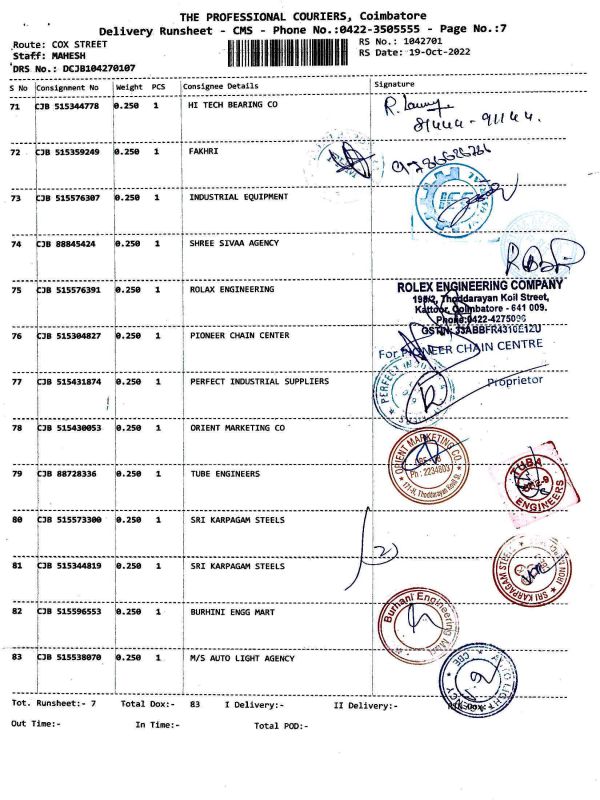 THE PROFESSIONAL COURIERS, Coimbatore
Delivery Runsheet - CMS - Phone No.:0422-3505555 - Page No.:7
Route: COX STREET
RS No.: 1042701
Staff: MAHESH
RS Date: 19-Oct-2022
DRS No.: DCJB104270107
S No Consignment No Weight PCS Consignee Details Signature
71 CJB 515344778 0.250 1 HI TECH BEARING CO
81444-91144.
72 CJB 515359249 0.250 1 FAKHRI
73 CJB 515576307 0.250 1 INDUSTRIAL EQUIPMENT
74 CJB 88845424 0.250 1 SHREE SIVAA AGENCY
75 CJB 515576391 0.250 1 ROLAX ENGINEERING
ROLEX ENGINEERING COMPANY
198/2, Thoddarayan Koil Street,
Kattoor, Coimbatore - 641 009.
Phone:0422-4275096
GSTIN: 33ABBFR4310E1ZU
76 CJB 515304827 0.250 1 PIONEER CHAIN CENTER
For PIONEER CHAIN CENTRE
Proprietor
77 CJB 515431874 0.250 1 PERFECT INDUSTRIAL SUPPLIERS
PERFECT
78 CJB 515430053 0.250 1 ORIENT MARKETING CO
ORIENT MARKETING CO
Ph : 2234603
Thoddarayan Koil St.
79 CJB 88728336 0.250 1 TUBE ENGINEERS
ENGINEERS
80 CJB 515573300 0.250 1 SRI KARPAGAM STEELS
81 CJB 515344819 0.250 1 SRI KARPAGAM STEELS
SRI KARPAGAM STEELS
82 CJB 515596553 0.250 1 BURHINI ENGG MART
Burhani Engineering
83 CJB 515538070 0.250 1 M/S AUTO LIGHT AGENCY
AUTO LIGHT AGENCY
CBE
Tot. Runsheet:- 7 Total Dox:- 83 I Delivery:- II Delivery:-
Out Time:- In Time:- Total POD:-